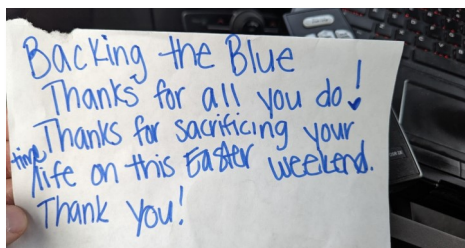 Backing the Blue
Thanks for all you do!
Thanks for sacrificing your
time/life on this Easter weekend.
Thank you!